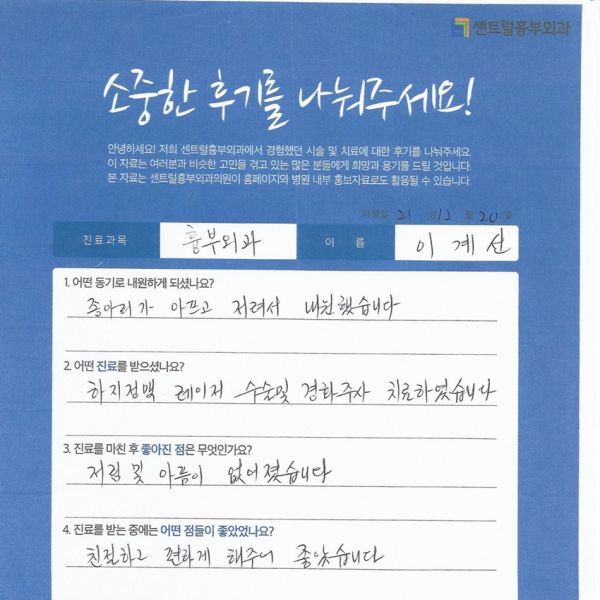 센트럴흉부외과
소중한 후기를 나눠주세요!
안녕하세요! 저희 센트럴흉부외과에서 경험했던 시술 및 치료에 대한 후기를 나눠주세요.
이 자료는 여러분과 비슷한 고민을 겪고 있는 많은 분들에게 희망과 용기를 드릴 것입니다.
본 자료는 센트럴흉부외과의원이 홈페이지와 병원 내부 홍보자료로도 활용될 수 있습니다.
작성일 21 년 12 월 20 일
진료과목 흉부외과 이 름 이계선
1. 어떤 동기로 내원하게 되셨나요?
종아리가 아프고 저려서 내원했습니다
2. 어떤 진료를 받으셨나요?
하지정맥 레이저 수술및 경화주사 치료하였습니다
3. 진료를 마친 후 좋아진 점은 무엇인가요?
저림 및 아픔이 없어졌습니다
4. 진료를 받는 중에는 어떤 점들이 좋았었나요?
친절하고 편하게 해주니 좋았습니다